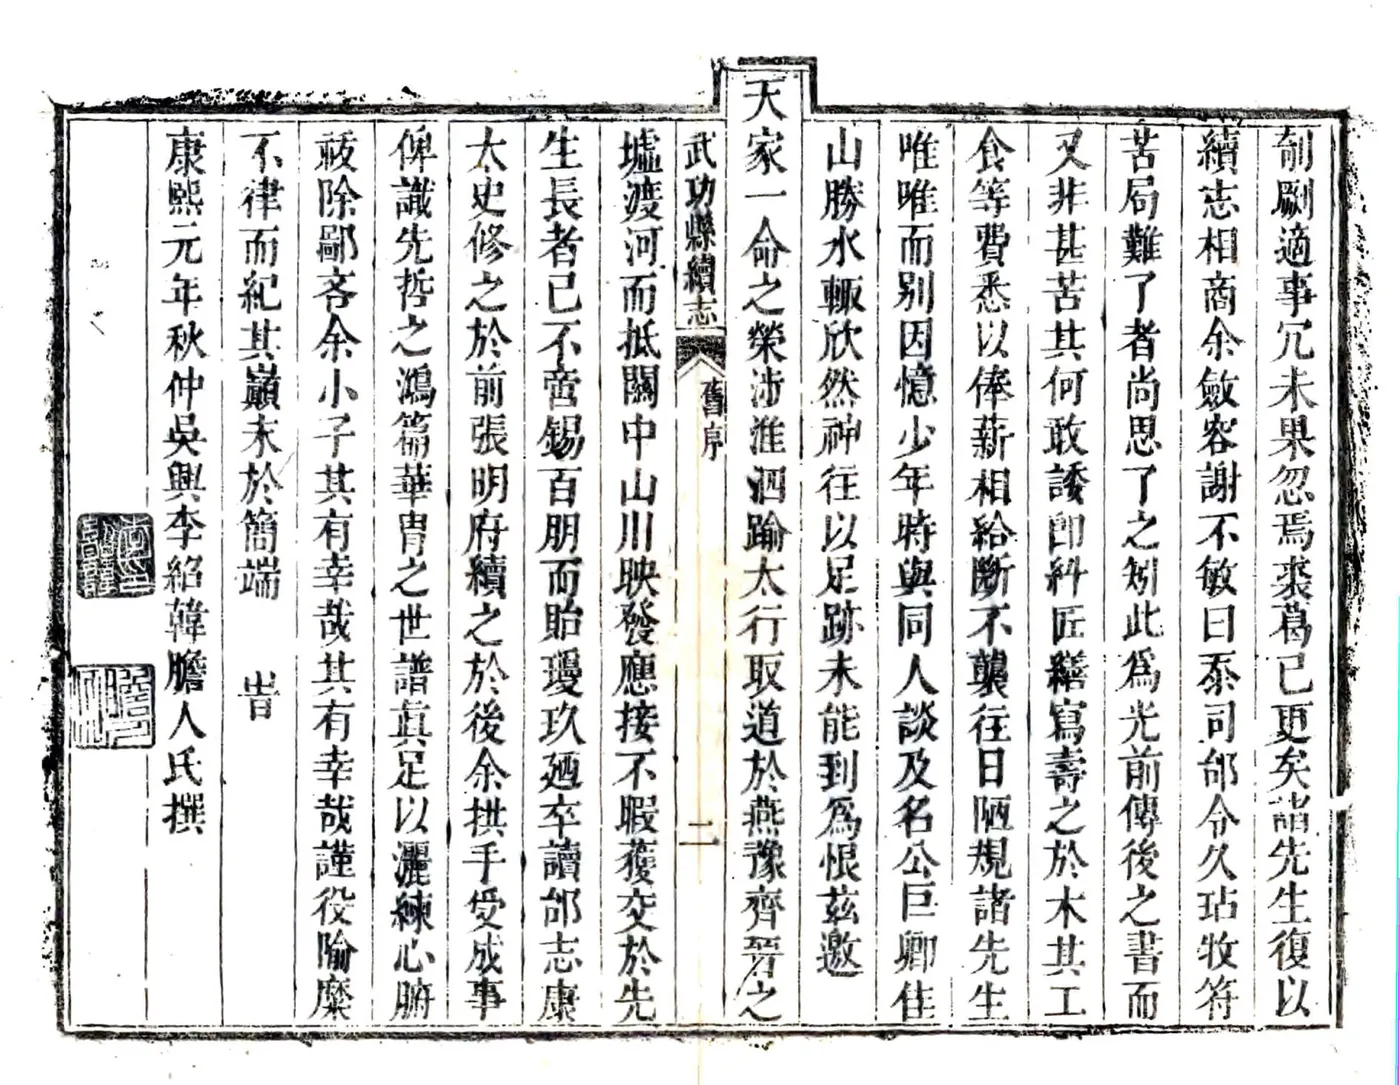 剞劂適事冗未果忽焉裘葛已更矣諸先生復以
續志相商余斂容謝不敏曰忝司邰令久玷牧符
苦局難了者尚思了之矧此為光前傳後之書而
又非甚苦其何敢諉卽糾匠繕寫壽之於木其工
食等費悉以俸薪相給斷不襲往日陋規諸先生
唯唯而別因憶少年時與同人談及名公巨卿佳
山勝水輙欣然神往以足跡未能到為恨茲邀
天家一命之榮涉淮泗踰太行取道於燕豫齊晉之
武功縣續志 舊序 二
墟渡河而抵關中山川映發應接不暇獲交於先
生長者已不啻錫百朋而貽瓊玖廼卒讀邰志康
太史修之於前張明府續之於後余拱手受成事
俾識先哲之鴻篇華胄之世譜眞足以灑練心腑
祓除鄙吝余小子其有幸哉其有幸哉謹役隃糜
不律而紀其巔末於簡端 旹
康熙元年秋仲吳興李紹韓膽人氏撰